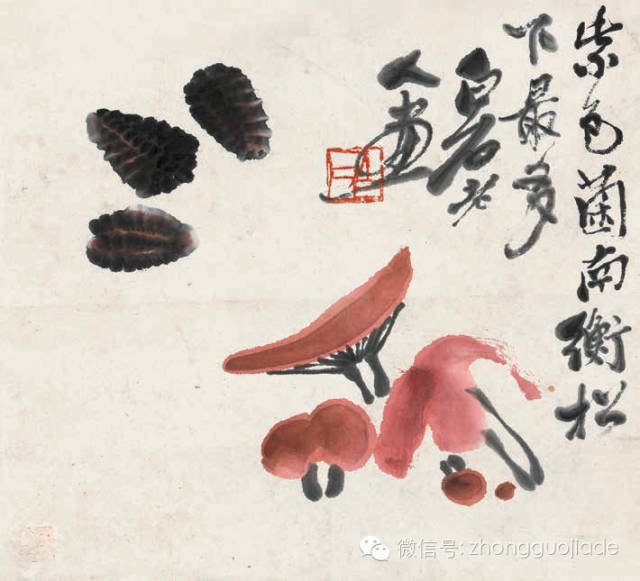 紫色菌南衡松
下最多
白石老
人畫
微信号: zhongguojiade